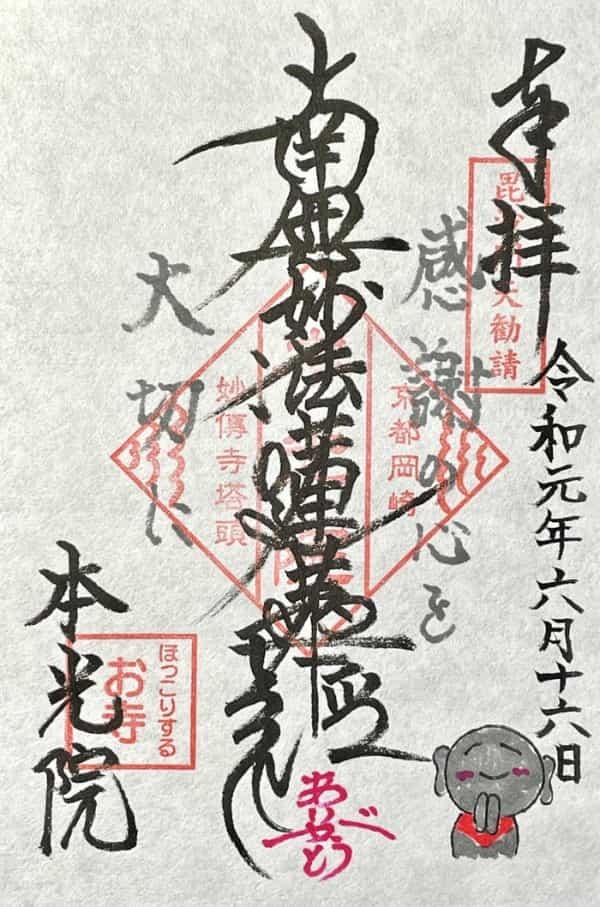 奉拝
毘沙門天勧請
令和元年六月十六日
感謝の心を
京都岡崎
南無妙法蓮華経
妙傳寺塔頭
大切に
本光院
ほっこりする
お寺
ありがとう